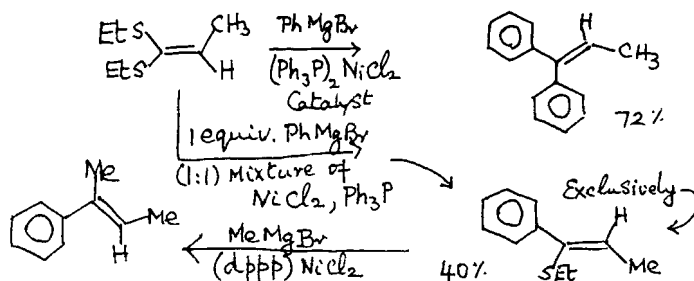 EtS
EtS
CH3
H
PhMgBr
(Ph3P)2 NiCl2
Catalyst
H
CH3
72%
1 equiv. PhMgBr
(1:1) Mixture of
NiCl2, Ph3P
Exclusively
Me
Me
H
MeMgBr
(dppp) NiCl2
40%
H
SEt
Me